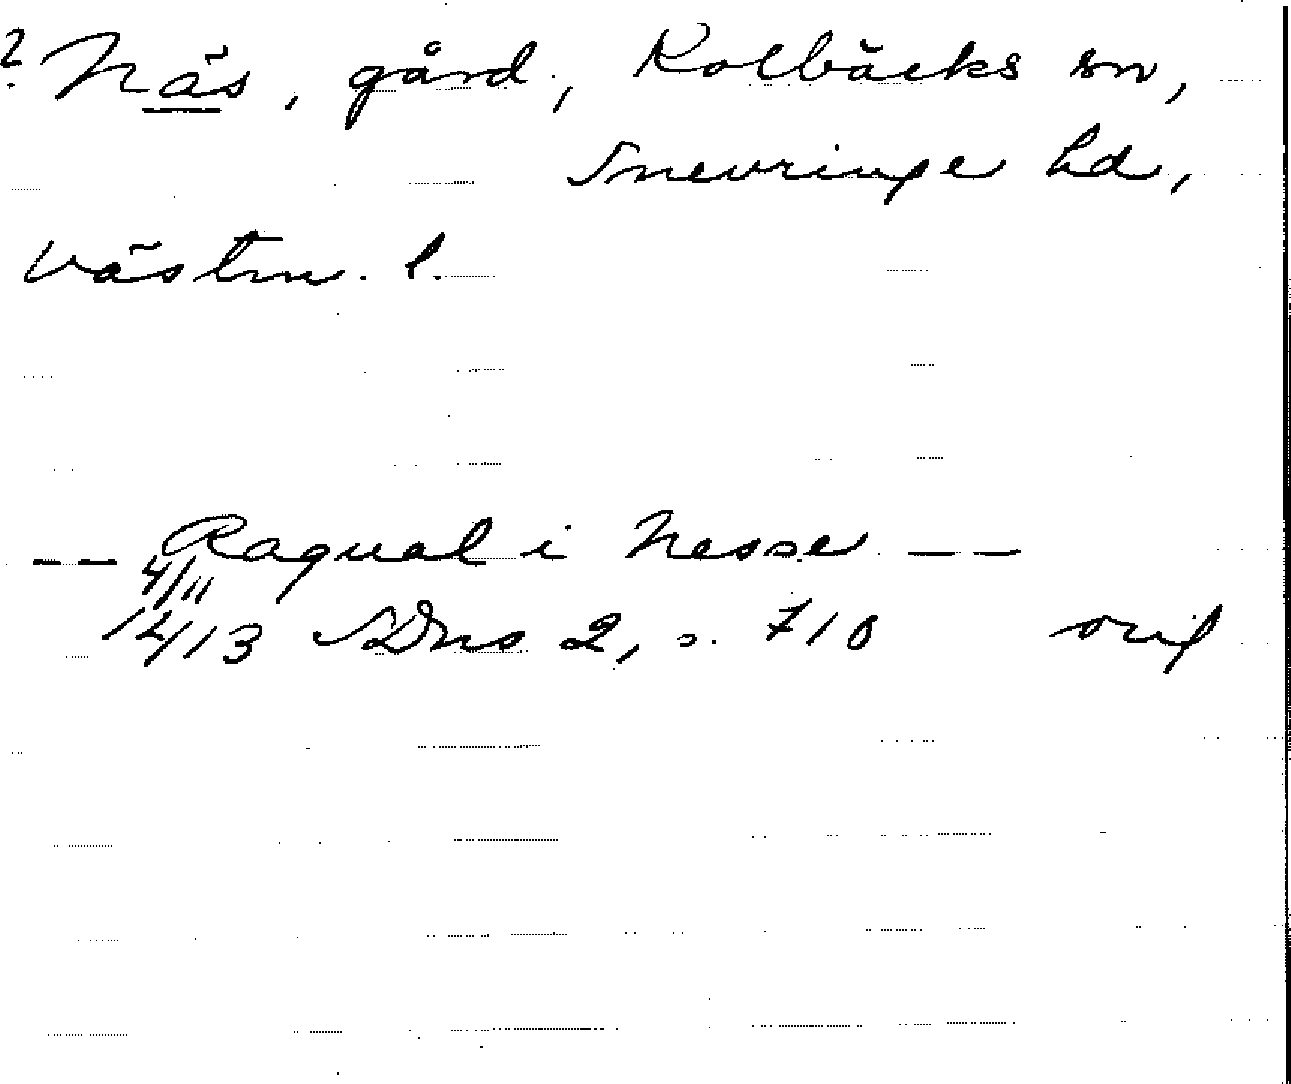 ? Näs, gård, Kolbäcks sn,
Snevringe hd,
Västm. l.
-- Ragual i Nesse --
4/11
1413 SDns 2, s. 710 orig